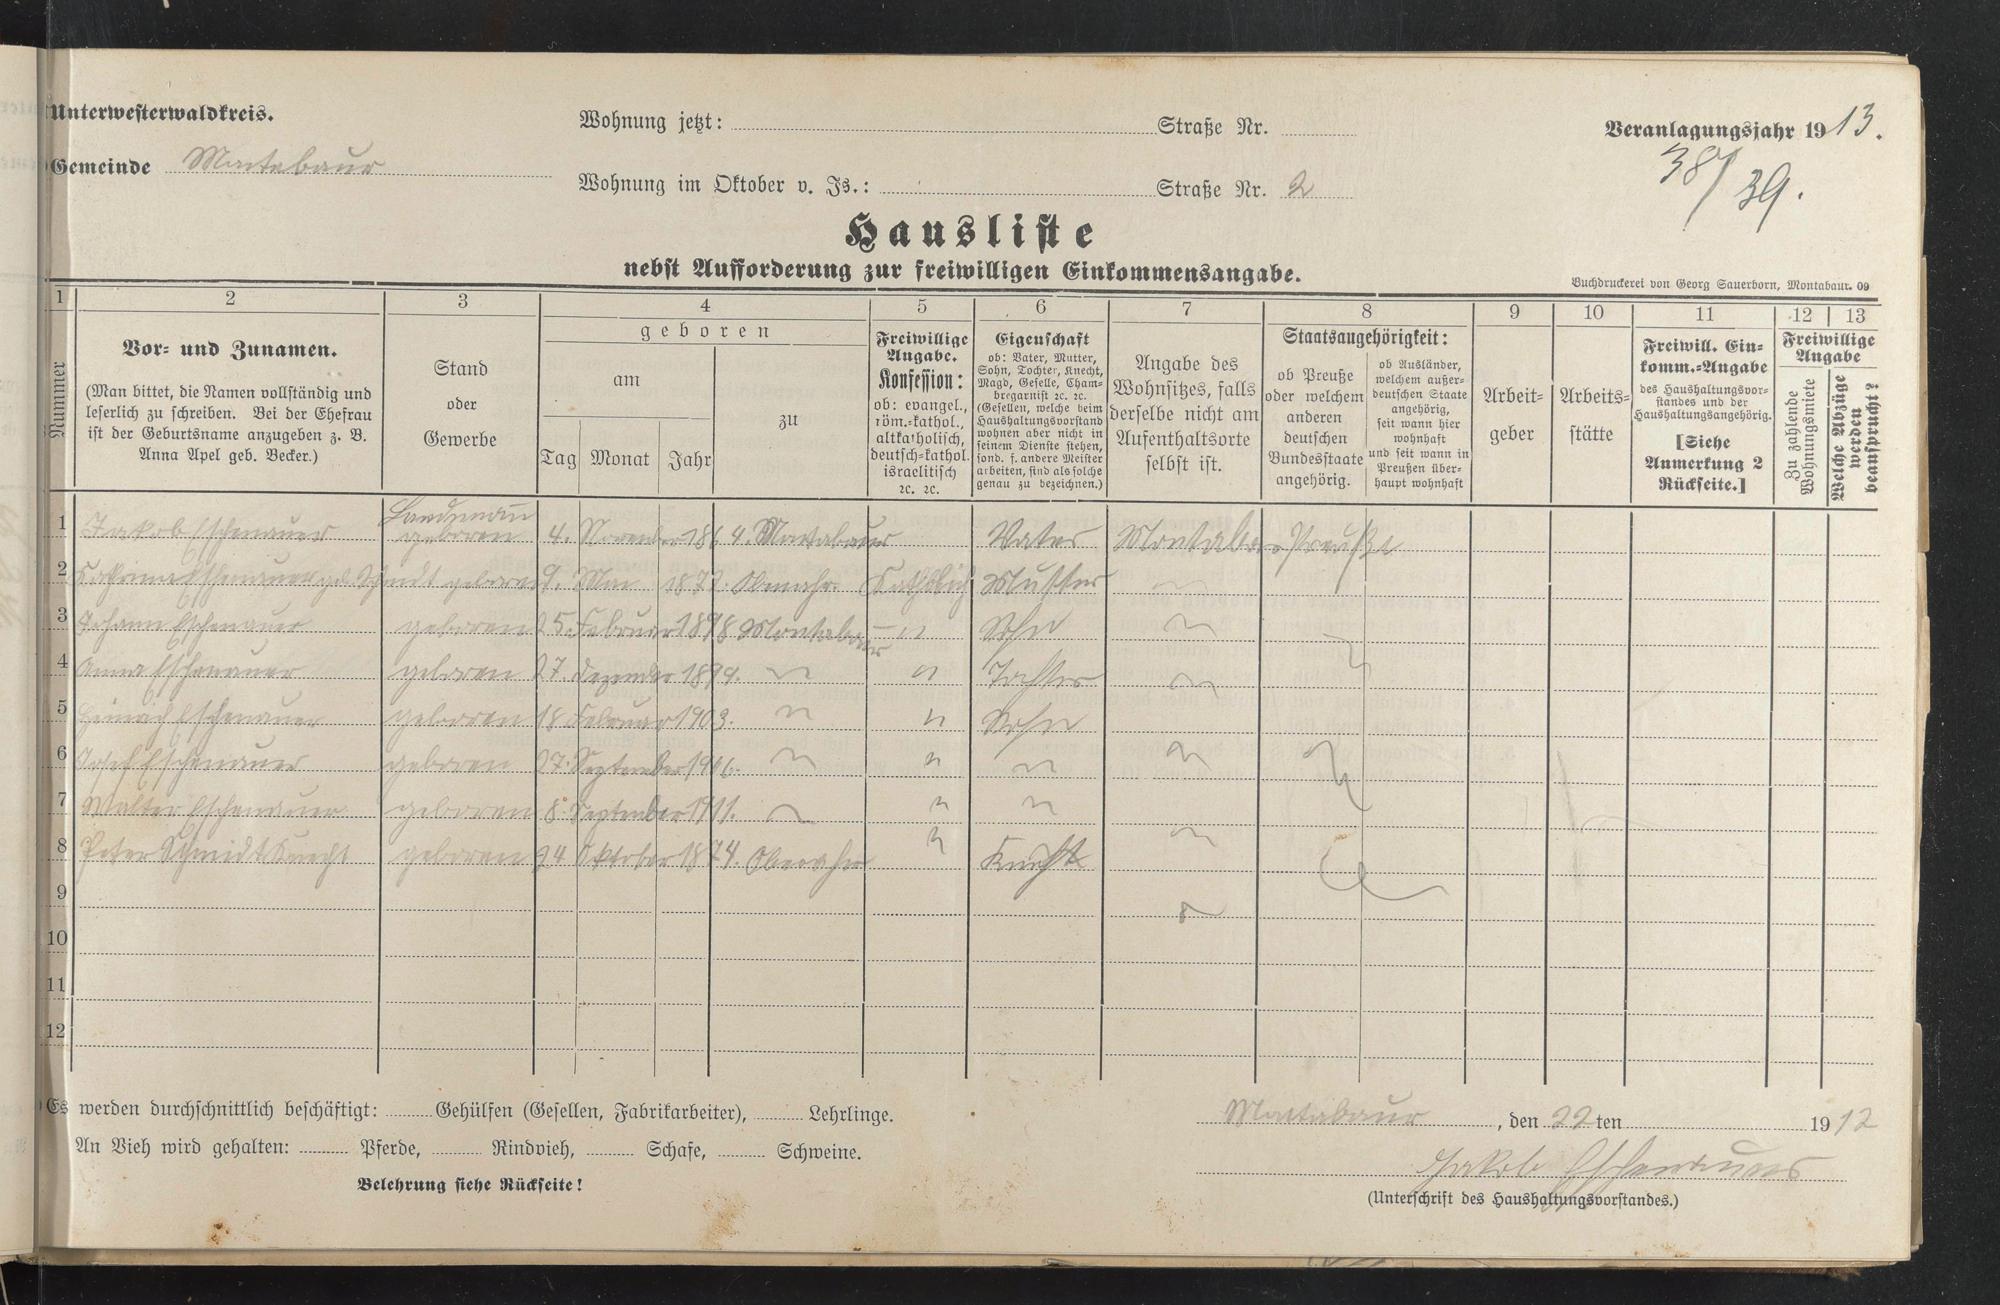 Unterwesterwaldkreis.
Gemeinde Montabaur
Wohnung jetzt: Straße Nr.
Wohnung im Oktober v. Js.: Straße Nr. 2
Veranlagungsjahr 1913.
38/39.
Hausliste
nebst Aufforderung zur freiwilligen Einkommensangabe.
Buchdruckerei von Georg Sauerborn, Montabaur. 09
1 2 3 4 5 6 7 8 9 10 11 12 13
Nummer
Vor- und Zunamen.
(Man bittet, die Namen vollständig und
leserlich zu schreiben. Bei der Ehefrau
ist der Geburtsname anzugeben z. B.
Anna Apel geb. Becker.)
Stand
oder
Gewerbe
geboren
am
Tag Monat Jahr
zu
Freiwillige
Angabe.
Konfession:
ob: evangel.,
röm.-kathol.,
altkatholisch,
deutsch-kathol.
israelitisch
ꝛc. ꝛc.
Eigenschaft
ob: Vater, Mutter,
Sohn, Tochter, Knecht,
Magd, Geselle, Cham-
bregarnist ꝛc. ꝛc.
(Gesellen, welche beim
Haushaltungsvorstand
wohnen aber nicht in
seinem Dienste stehen,
sond. f. andere Meister
arbeiten, sind als solche
genau zu bezeichnen.)
Angabe des
Wohnsitzes, falls
derselbe nicht am
Aufenthaltsorte
selbst ist.
Staatsangehörigkeit:
ob Preuße
oder welchem
anderen
deutschen
Bundesstaate
angehörig.
ob Ausländer,
welchem außer-
deutschen Staate
angehörig,
seit wann hier
wohnhaft
und seit wann in
Preußen über-
haupt wohnhaft
Arbeit-
geber
Arbeits-
stätte
Freiwill. Ein-
komm.-Angabe
des Haushaltungsvor-
standes und der
Haushaltungsangehörig.
[Siehe
Anmerkung 2
Rückseite.]
Freiwillige
Angabe
Zu zahlende
Wohnungsmiete
Welche Abzüge
werden
beansprucht?
Landmann
1 Jakob Eschenauer geboren 4. November 1864. Montabaur Vater Montabaur Preuße
2 Eschenauer geb. Schmidt geboren 9. Mai Katholisch Mutter
3 Johann Eschenauer geboren 25. Februar 1898 Montabaur " Sohn
4 Anna Eschenauer geboren 27 Dezember 1899. " " Tochter
5 Heinrich Eschenauer geboren 18 Februar 1903. " " Sohn
6 Josef Eschenauer geboren 27. September 1906. " " "
7 Walter Eschenauer geboren 8. September 1911. " " "
8 Peter Schmidt Knecht geboren 24 Oktober 1874. Oberahr " Knecht
9
10
11
12
Es werden durchschnittlich beschäftigt: Gehülfen (Gesellen, Fabrikarbeiter), Lehrlinge.
An Vieh wird gehalten: Pferde, Rindvieh, Schafe, Schweine.
Belehrung siehe Rückseite!
Montabaur, den 22ten 1912
Jakob Eschenauer
(Unterschrift des Haushaltungsvorstandes.)